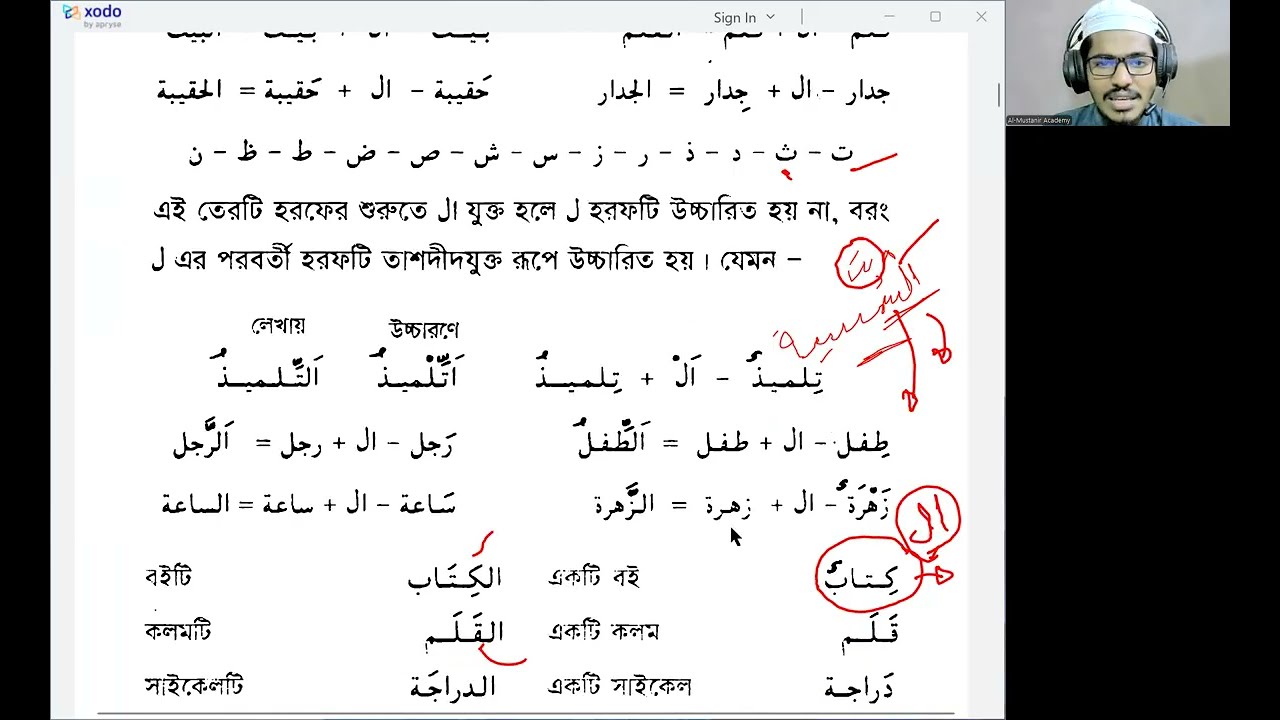 xodo
by apryse
Sign In
Al-Mustanir Academy
جدار – ال + جِدار = الجدار حَقيبة – ال + حَقيبة = الحقيبة
ت – ث – د – ذ – ر – ز – س – ش – ص – ض – ط – ظ – ن
এই তেরটি হরফের শুরুতে ال যুক্ত হলে ل হরফটি উচ্চারিত হয় না, বরং
ل এর পরবর্তী হরফটি তাশদীদযুক্ত রূপে উচ্চারিত হয়। যেমন –
উচ্চারণে লেখায়
تِلميذٌ – اَلْ + تِلميـذٌ اَتِّلْميذُ اَلتِّلميذُ
طِفل – ال + طفل = اَلطِّفلُ رَجل – ال + رجل = اَلرَّجل
زَهْرَةٌ – ال + زهرة = الزَّهرة سَاعة – ال + ساعة = الساعة
ال
كِتابٌ একটি বই الكِتَاب বইটি
قَلَم একটি কলম القَلَم কলমটি
دَراجة একটি সাইকেল الدراجَة সাইকেলটি